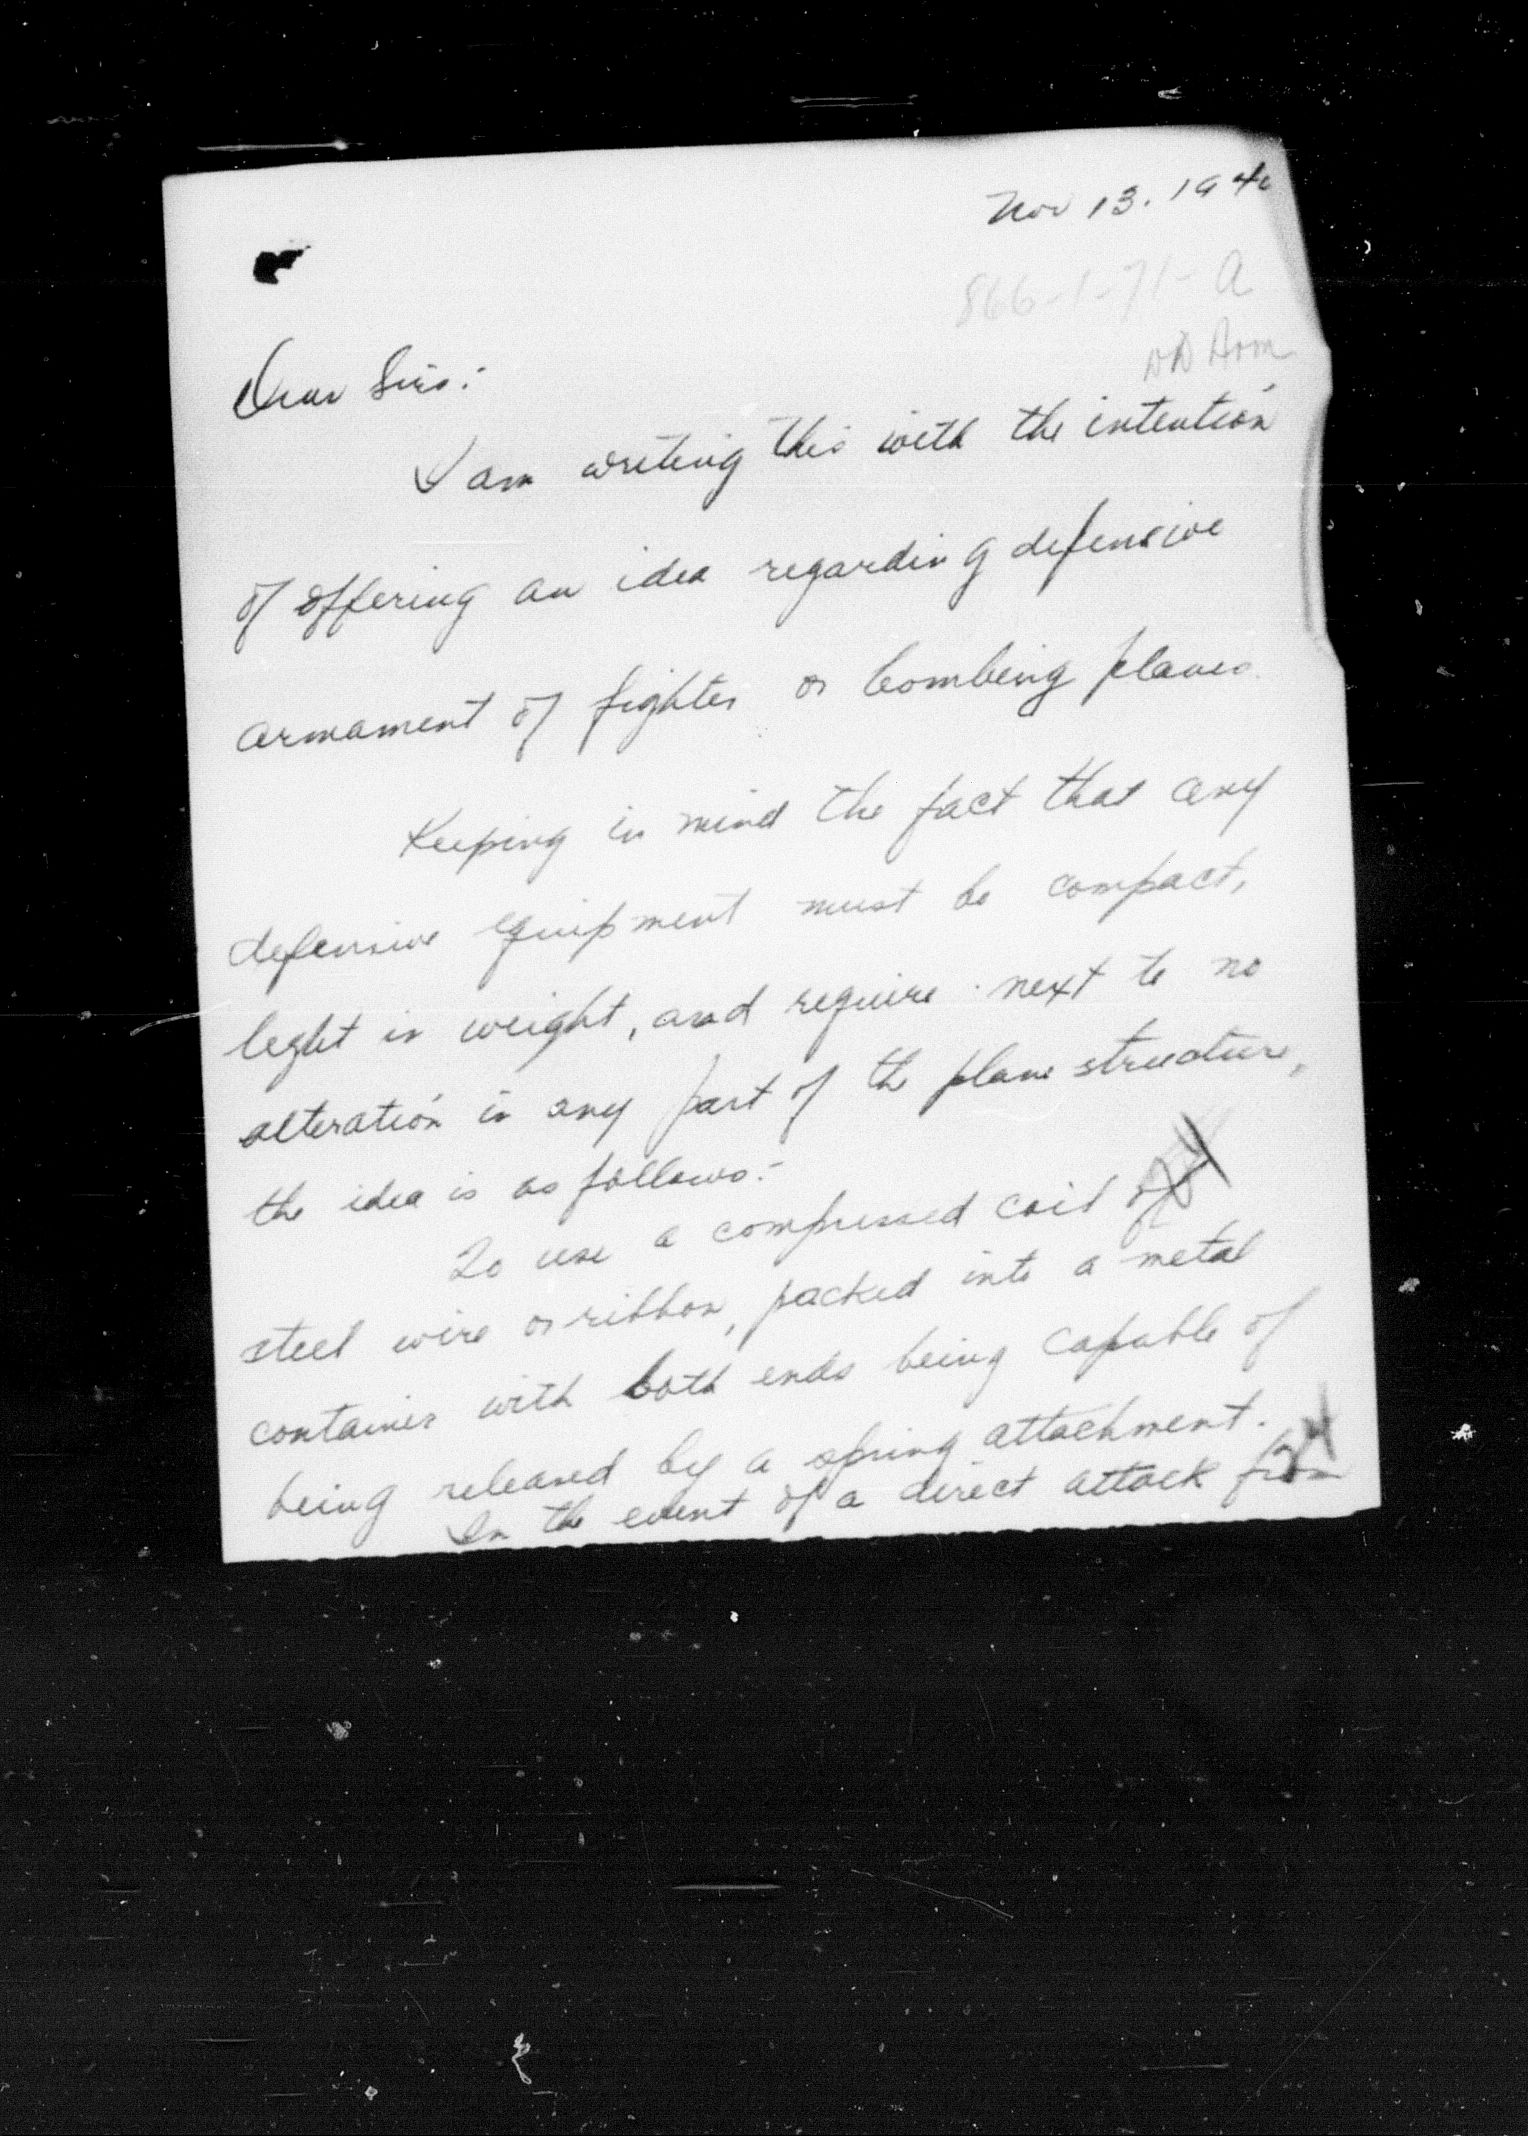 Nov 13. 1940
866-1-71-A
DD Arm
Dear Sirs:
I am writing this with the intention
of offering an idea regarding defensive
armament of fighter or bombing planes.
Keeping in mind the fact that any
defensive equipment must be compact,
light in weight, and require next to no
alteration in any part of the plane structure,
the idea is as follows:-
To use a compressed coil of
steel wire or ribbon, packed into a metal
container with both ends being capable of
being released by a spring attachment.
In the event of a direct attack from